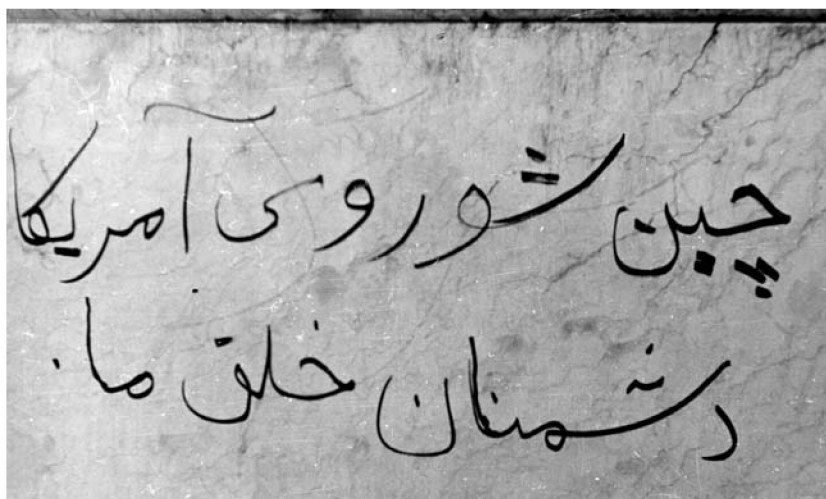 چین شوروی آمریکا
دشمنان خلق ما.